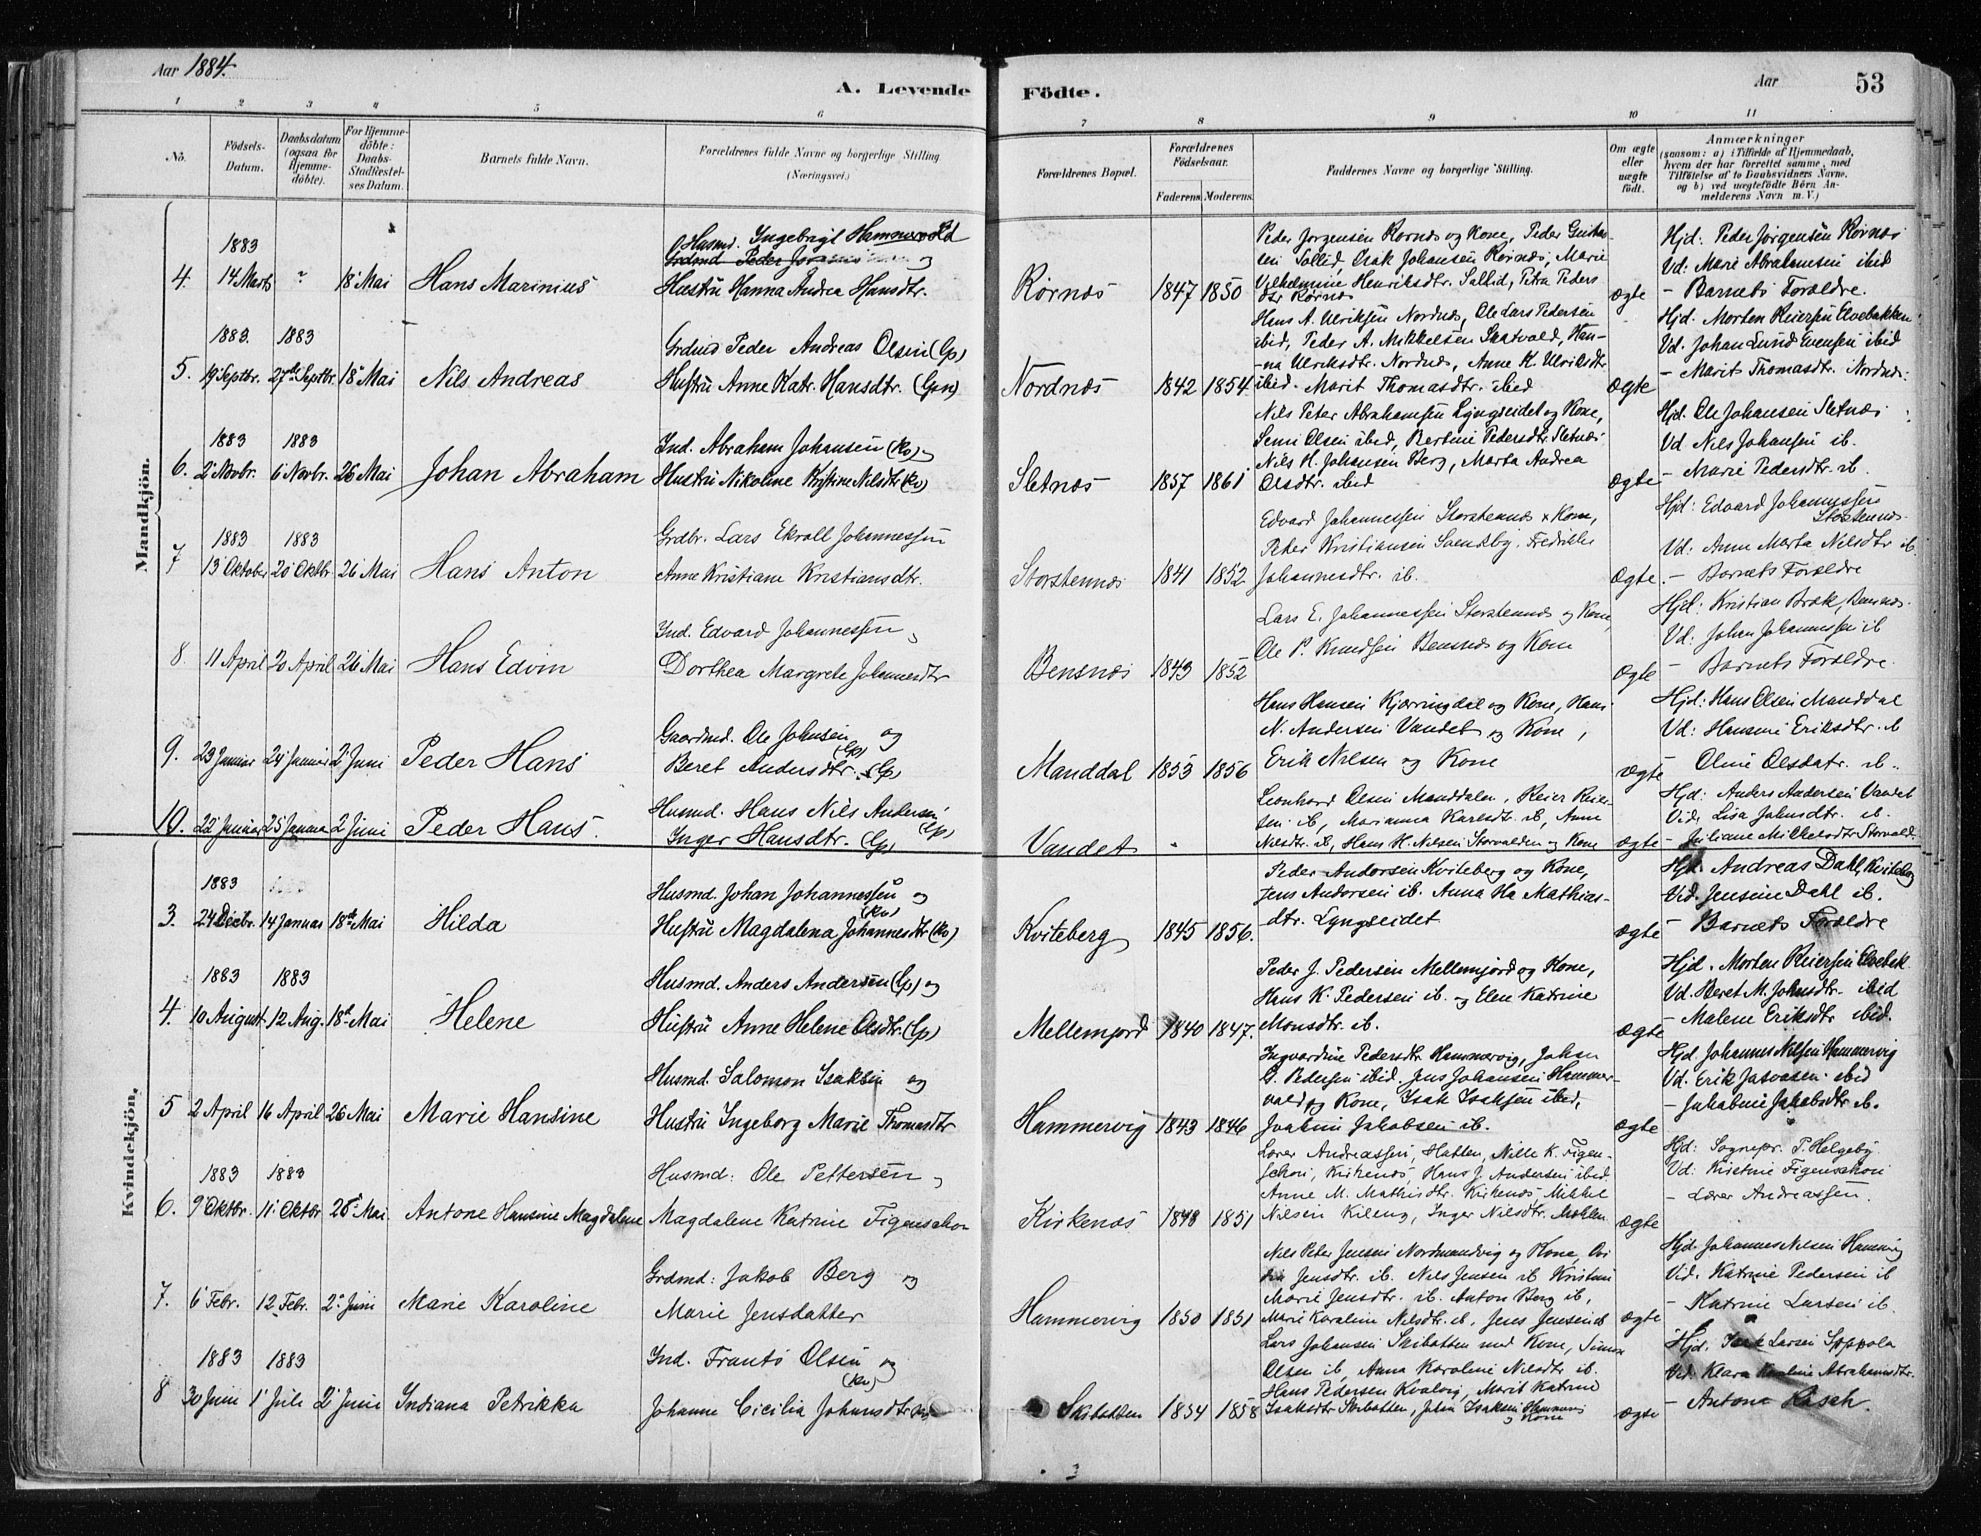 Aar 1884.
A. Levende Födte.
Aar 53
1 2 3 4 5 6 7 8 9 10 11
No.
Födsels-Datum.
Daabsdatum (ogsaa for Hjemme-döbte).
For Hjemme-döbte: Daabs-Stadfæstel-ses Datum.
Barnets fulde Navn.
Forældrenes fulde Navne og borgerlige Stilling (Næringsvei.)
Forældrenes Bopæl.
Forældrenes Födselsaar.
Faderens Moderens
Faddernes Navne og borgerlige Stilling.
Om ægte eller uægte födt.
Anmærkninger
(saasom: a) i Tilfælde af Hjemmedaab,
hvem der har forrettet samme, med
Tilföielse af to Daabsvidners Navne,
og b) ved uægtefödte Börn An-
melderens Navn m. V.)
Mandkjön.
4. 1883 14 Marts ? 18 Mai Hans Marinius
Husmd. Ingebrigt Hammervold
Grdmd Peder og
Hustru Hanna Andrea Hansdtr.
Rörnæs 1847 1850
Peder Jörgensen Rörnæs og Kone, Peder
Sollid, Isak Johansen Rörnæs, Marie
Vilhelmine Henriksdtr. Sollid, Petra Peders
dtr Rörnæs
ægte
Hjd: Peder Jörgensen Rörnæs
Vd: Marie Abrahamsen ibid
- Barnets Forældre.
5. 1883. 19 Septbr. 1883 27de Septbr. 18 Mai Nils Andreas
Grdmd Peder Andreas Olsen (Lp)
Hustru Anne Katr. Hansdtr. (Lpn)
Nordnæs 1842 1854
Hans A. Ulriksen Nordnæs, Ole Lars Pedersen
ibid, Peder A. Mikkelsen Skatvold, Han-
na Ulriksdtr. Nordnæs, Anne K. Ulriksdtr
ibid. Marit Thomasdtr. ibid
ægte
Hjd. Morten Reiersen Elvebakken
Vd. Johan Lund Evensen ibid
- Marit Thomasdtr. Nordnæs.
6. 1883 2 Novbr. 1883 6 Novbr. 26 Mai Johan Abraham
Ind. Abraham Johansen (Kv) og
Hustru Nikoline Kristine Nilsdtr (Kv)
Sletnæs 1857 1861
Nils Peter Abrahamsen Lyngseidet og Kone,
Olsen ibid, Bertine Pedersdtr. Sletnæs
Nils H. Johansen Berg, Marta Andrea
Olsdtr. ibid
ægte
Hjd. Ole Johansen Sletnæs
Vd Nils Johansen ib.
- Marie Pedersdtr. ib.
7 1883 13 Oktober 1883 20 Oktbr 26 Mai Hans Anton
Grdbr. Lars Ekroll Johannessen
Anne Kristiane Kristiansdtr.
Storstennæs 1841 1852
Edvard Johannessen Storstennæs x Kone,
Peter Kristiansen Svendsby, Fredrikke
Johannesdtr. ib.
ægte.
Hjd: Edvard Johannessen
Storstennæs.
Vd: Anne Marta Nilsdtr ib.
- Barnets Forældre
8. 11 April 20 April 26 Mai Hans Edvin
Ind. Edvard Johannessen
Dorthea Margrete Johannesdtr
Bensnæs 1843 1852
Lars E. Johannessen Storstennæs og Kone,
Ole P. Knudsen Bensnæs og Kone
ægte
Hjd: Kristian Bræk, Bensnæs.
Vd: Johan Johannessen ib
- Barnets Forældre.
9. 23 Januar 24 Januar 2 Juni Peder Hans
Gaardmd. Ole Johnsen og
(Lp)
Beret Andersdtr. (Lp)
Manddal 1853 1856
Hans Hansen Kjerringdal og Kone, Hans
N. Andersen Vandet og Kone,
Erik Nilsen og Kone
ægte
Hjd: Hans Olsen Manddal
Vd: Hansine Eriksdtr. ib
Oline Olsdatr. ib.
10. 22 Januar 25 Januar 2 Juni Peder Hans.
Husmd. Hans Nils Andersen
(Lp)
Inger Hansdtr. (Lp)
Vandet
Leonhard Olsen Manddalen, Reier Reier-
sen ib, Marianna Karlsdtr ib, Anne
Nilsdtr. ib, Hans H. Nilsen Storvolden og Kone
ægte
Hjd: Anders Andersen Vandet
Vid. Lisa Johnsdtr. ib.
- Juliane Mikkelsdtr Storvold.
Kvindekjön.
3. 1883 24 Decbr. 14 Januar 18de Mai Hilda
Husmd. Johan Johannessen og
(Kv)
Hustru Magdalena Johannesdtr (Kv)
Kviteberg 1845 1856.
Peder Andersen Kviteberg og Kone,
Jens Andersen ib. Anna Ha Mathias-
dtr. Lyngseidet
ægte
Hjd. Andreas Dahl, Kviteberg
Vid. Jensine Dahl ib.
- Barnets Forældre
4. 1883 10 August 1883 12 Aug. 18de Mai Helene
Husmd. Anders Andersen (Lp) og
Hustru Anne Helene Olsdtr. (Lp)
Mellemjord 1840 1847.
Peder J. Pedersen Mellemjord og Kone,
Hans K. Pedersen ib. og Elen Katrine
Monsdtr. ib.
ægte
Hjd. Morten Reiersen Elvebak.
Vd. Beret M. Johnsdtr. ibid
- Malene Eriksdtr ibid.
5 2 April 16 April 26 Mai Marie Hansine
Husmd. Salomon Isaksen og
Hustru Ingeborg Marie Thomasdtr
Hammervig 1843 1846
Ingvardine Pedersdtr. Hammervig, Johan
Pedersen ibid. Jens Johansen Hammer-
vold og Kone, Isak Isaksen ibid,
Joakim Jakobsen ib.
ægte
Hjd. Johannes Nilsen Hammervig
Vd. Erik ibid
- Jakobine Jakobsdtr ib.
6. 1883 9 Oktbr. 1883 11 Oktbr 26 Mai Antone Hansine Magdalene
Husmd: Ole Pettersen
Magdalene Katrine Figenschou
Kirkenæs 1848 1851
Lærer Andreassen, Hatten, Nille K. Figen-
schou, Kirkenæs, Hans J. Andersen ibid
Anne M. Mathisdtr. Kirkenæs, Mikkel
Nilsen Kileng, Inger Nilsdtr.
ægte
Hjd: Sognepr. P. Helgeby
Vd: Kristine Figenschou
- Lærer Andreassen.
7. 6 Febr. 12 Febr. 2 Juni Marie Karoline
Grdmd: Jakob Berg og
Marie Jensdatter
Hammervig 1850 1851
Nils Peter Jensen Nordmandvig og Kone,
Jensdtr. ib. Nils Jensen ib Kristine
Marie Jensdtr. ib. Anton Berg ib,
Marie Karoline Nilsdtr. ib. Jens Jensen ib
ægte
Hjd. Johannes Nilsen Hammervig
Vid. Katrine Pedersen ib
- Katrine Larsen ib.
8 1883 30 Juni 1883 1 Juli 2 Juni Indiana Petrikka
Ind. Frants Olsen og
(Kv)
Johanne Cicilia Johansdtr
Skibotten 1854 1858
Lars Johansen Skibotten med Kone, Simon
Olsen ib, Anna Karoline Nilsdtr ib.
Hans Pedersen Kvalvig, Marit Katrine
Isaksdtr Skibotten, John Isaksen
Kone
ægte
Hjd. Isak Larsen Seppola
Vid. Klara Karoline Abrahamsdtr.
- Antona Rasch.